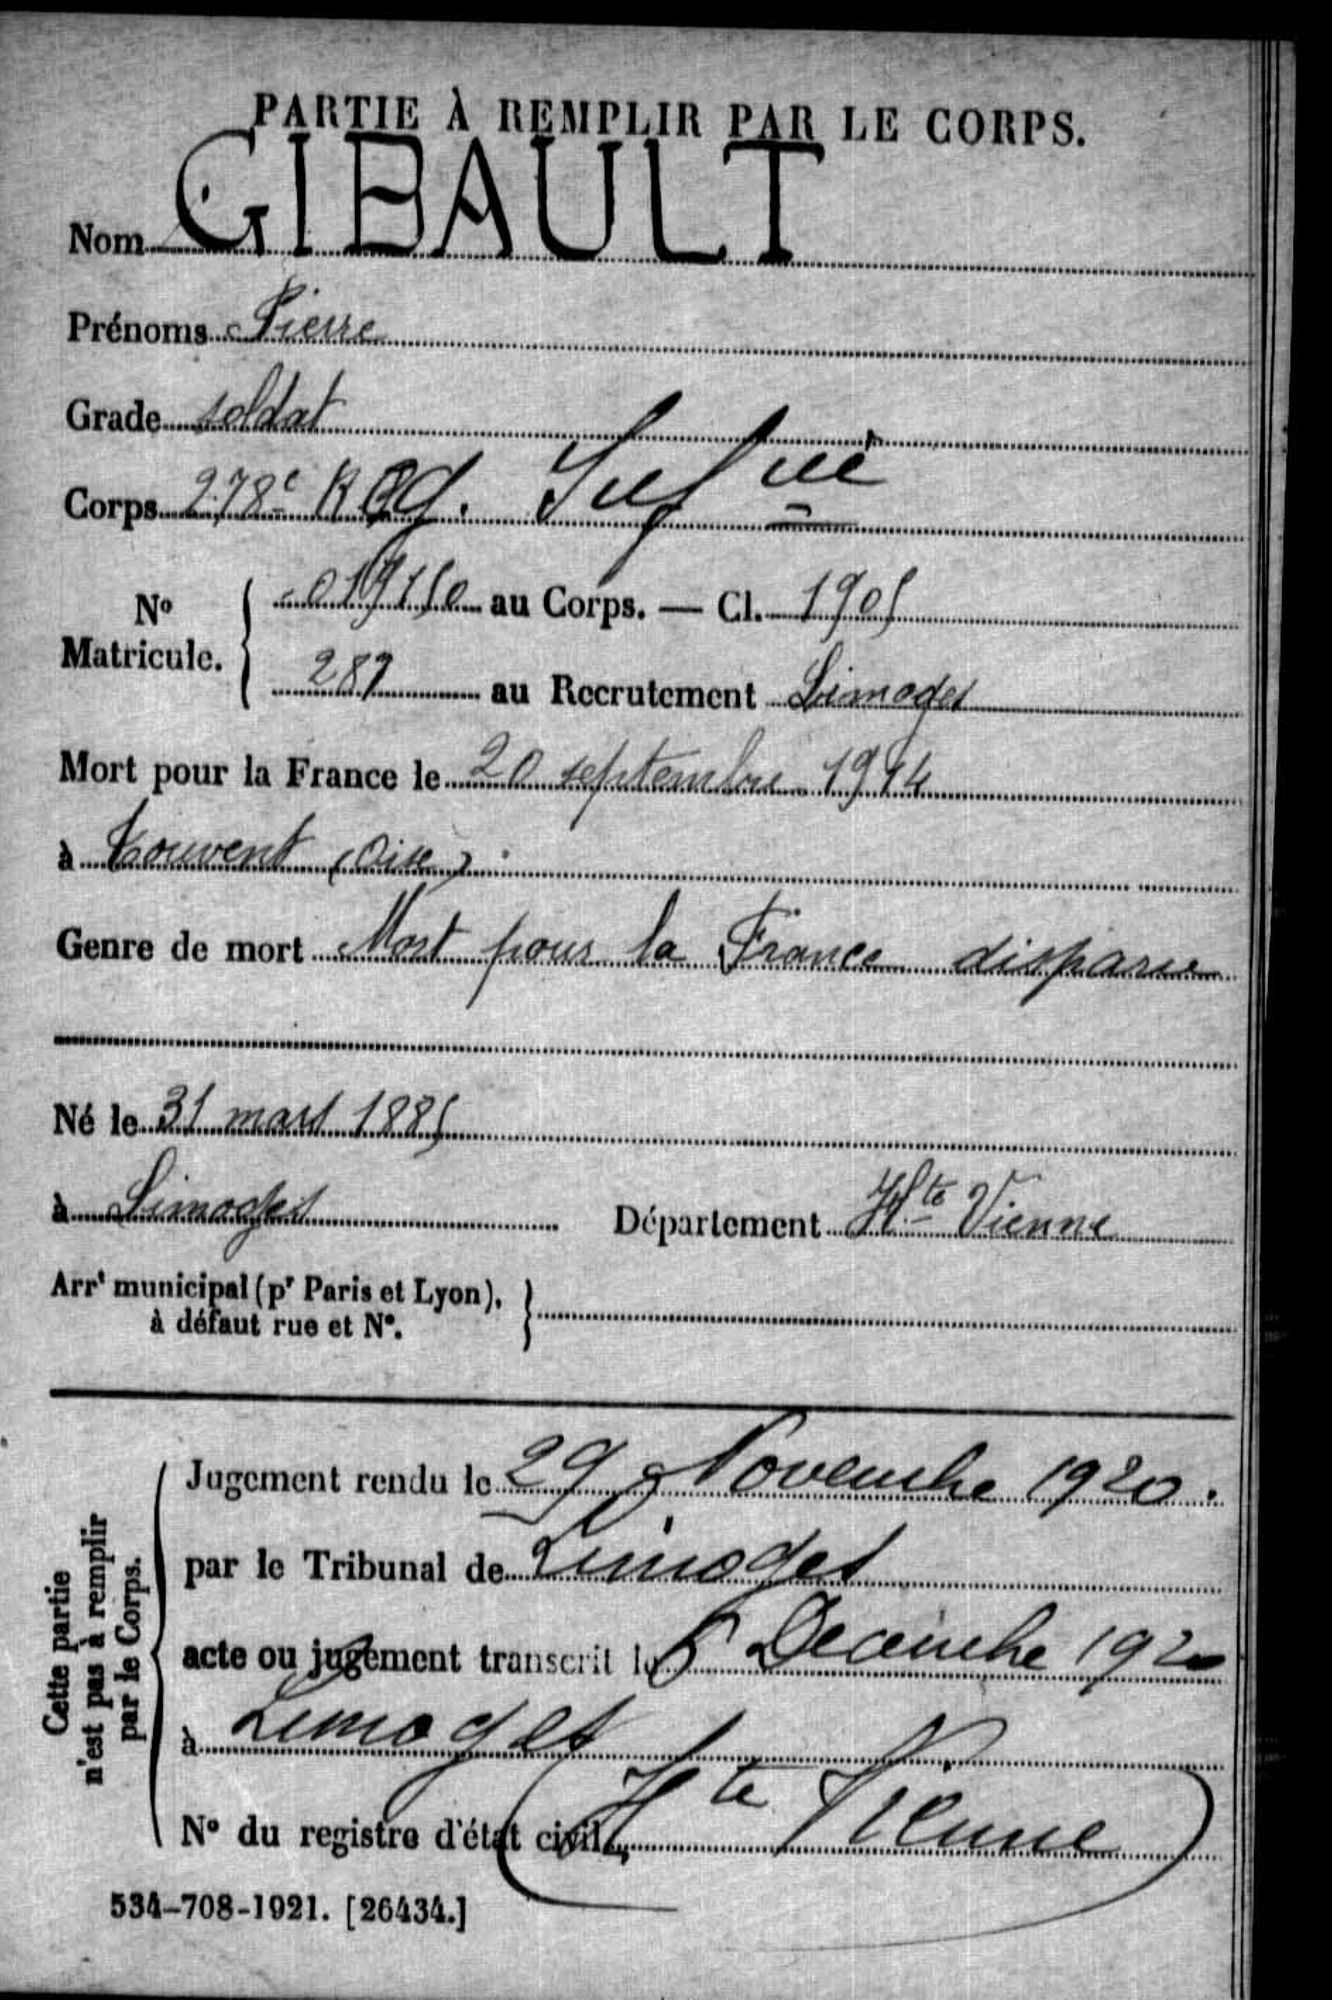 PARTIE À REMPLIR PAR LE CORPS.
Nom GIBAULT
Prénoms Pierre
Grade soldat
Corps 278e Reg. Inf rie
No Matricule. 019150 au Corps. — Cl. 1905
287 au Recrutement Limoges
Mort pour la France le 20 septembre 1914
à (Oise)
Genre de mort Mort pour la France disparu
Né le 31 mars 1885
à Limoges Département Hte Vienne
Arrt municipal (pr Paris et Lyon),
à défaut rue et No.
Cette partie
n'est pas à remplir
par le Corps.
Jugement rendu le 29 Novembre 1920.
par le Tribunal de Limoges
acte ou jugement transcrit le Décembre 1920
à Limoges
(Hte Vienne)
No du registre d'état civil
534-708-1921. [26434.]